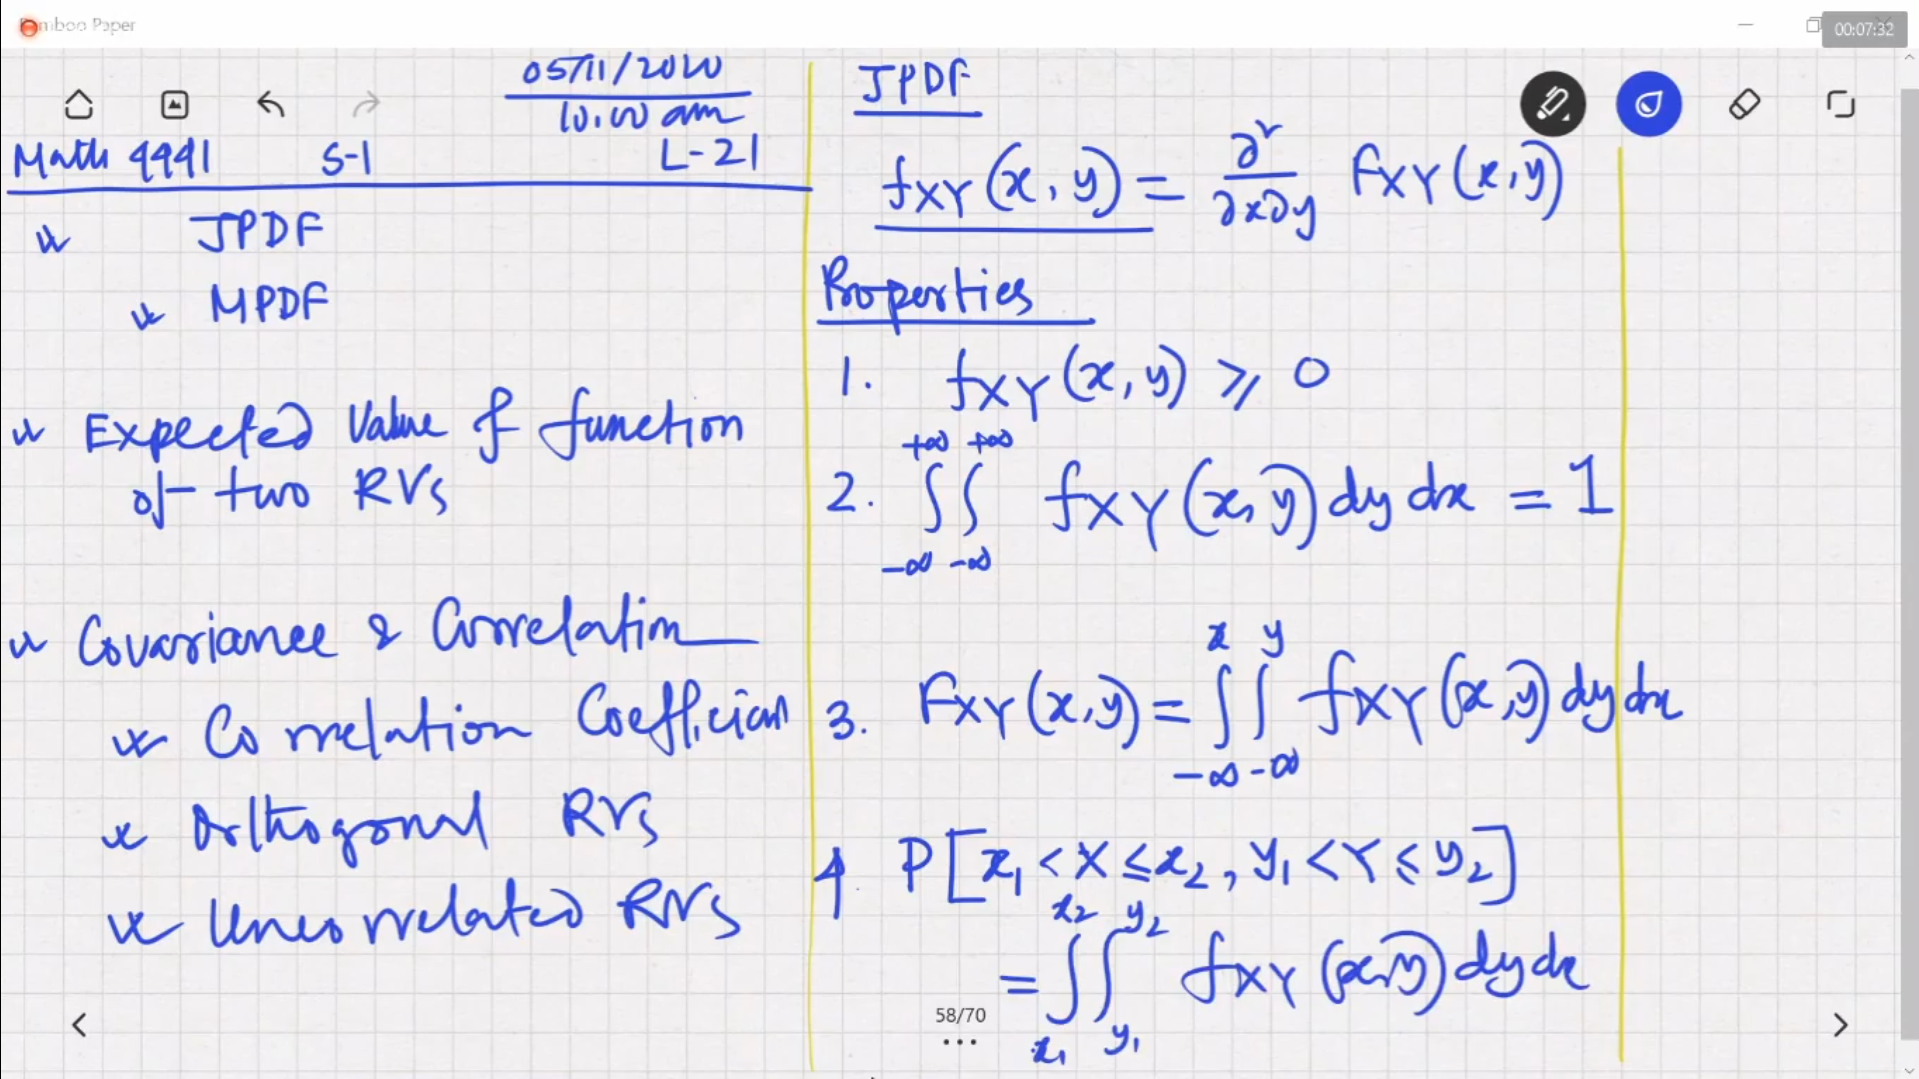 Bamboo Paper
00:07:32
05/11/2020
10.00 am
Math 4441 S-1 L-21
JPDF
MPDF
Expected Value of function
of two RVs
Covariance & Correlation
Correlation Coefficient
Orthogonal RVs
Uncorrelated RVs
JPDF
fXY(x,y) = ∂²/∂x∂y FXY(x,y)
Properties
1. fXY(x,y) ⩾ 0
2. ∫_{-∞}^{+∞} ∫_{-∞}^{+∞} fXY(x,y) dy dx = 1
3. FXY(x,y) = ∫_{-∞}^{x} ∫_{-∞}^{y} fXY(x,y) dy dx
4 P[x₁ < X ≤ x₂, y₁ < Y ≤ y₂]
= ∫_{x₁}^{x₂} ∫_{y₁}^{y₂} fXY(x,y) dy dx
58/70